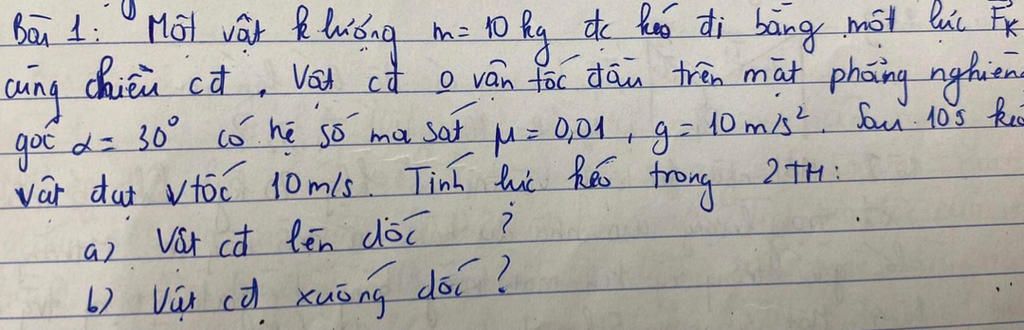 Bài 1: Một vật k lượng m = 10 kg đc kéo đi bằng một lực F⃗k
cùng chiều cđ. Vật cđ o vận tốc đầu trên mặt phẳng nghiêng
góc α = 30° có hệ số ma sát μ = 0,01, g = 10 m/s². Sau 10s kéo
vật đạt vtốc 10m/s. Tính lực kéo trong 2TH:
a) Vật cđ lên dốc ?
b) Vật cđ xuống dốc ?